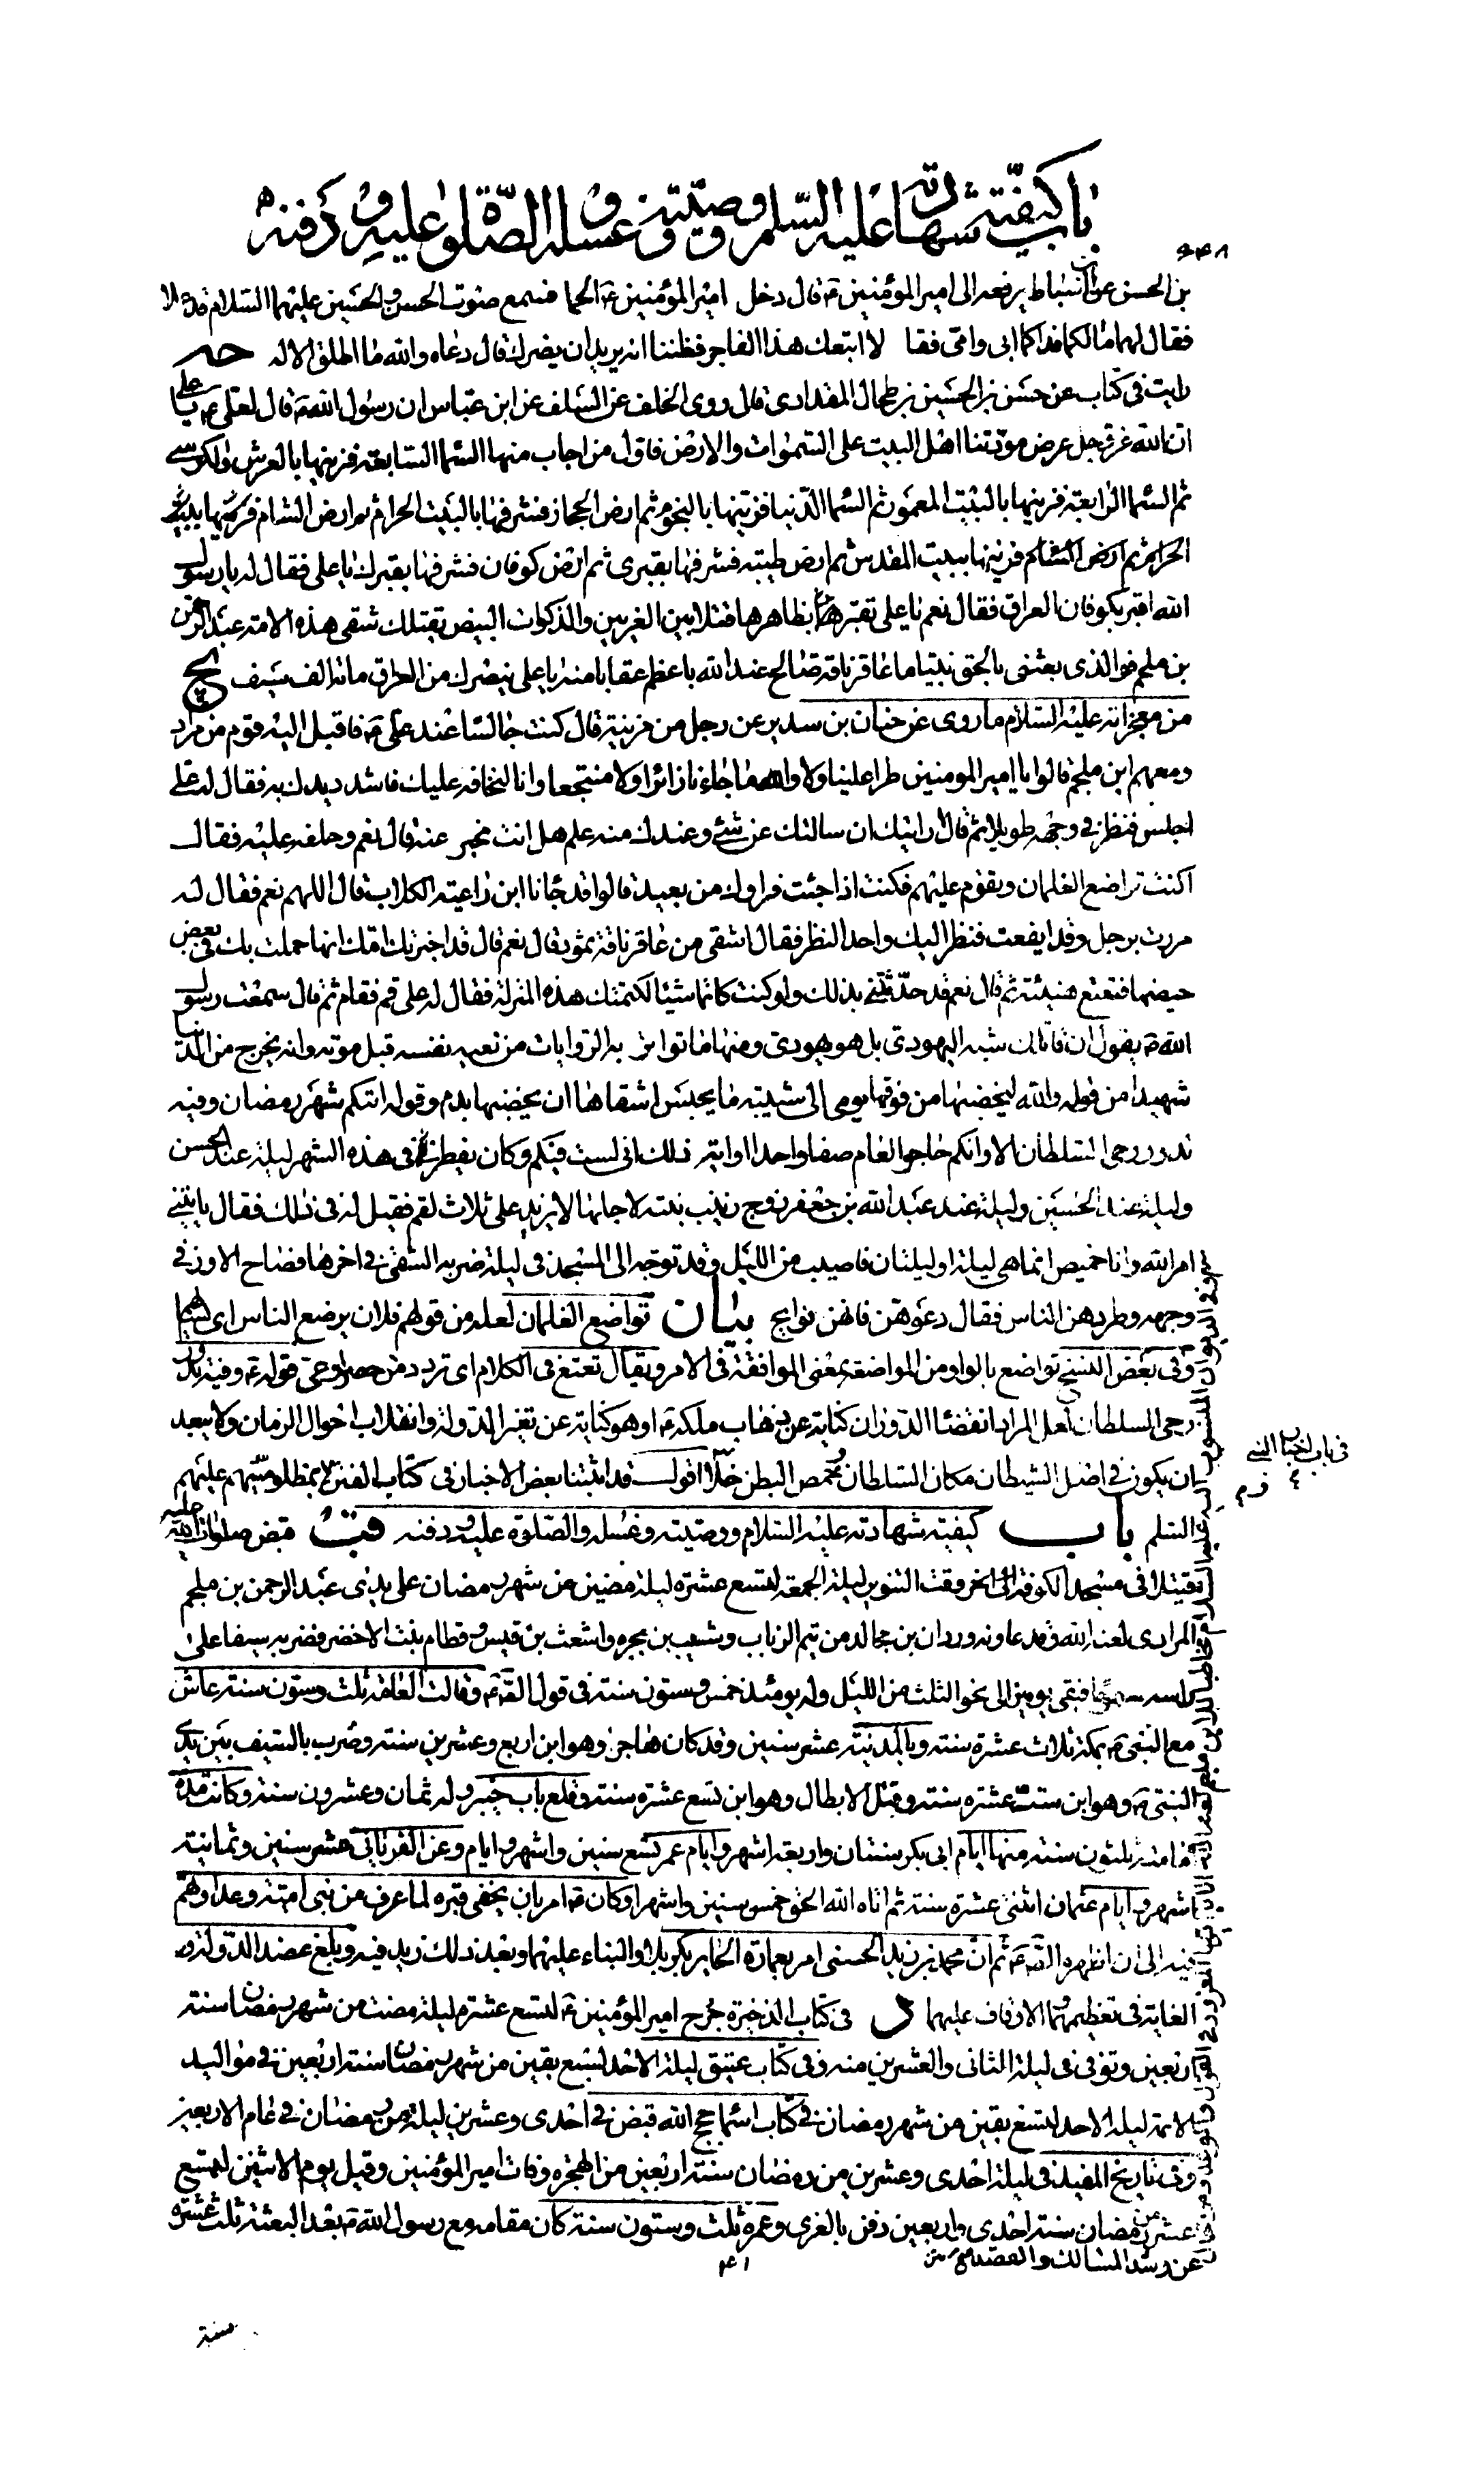 باب كيفيّة شهادته عليه السّلم و وصيّته و غسله و الصّلوة عليه و دفنه
بن الحسن عن اسباط يرفعه الى امير المؤمنين ع قال دخل امير المؤمنين ع الحما فسمع صوت الحسن و الحسين عليهما السلام قد علا
فقال لهما ما لكما فداكما ابى و امى فقا لا اتبعك هذا الفاجر فظننا انه يريد ان يضرك قال دعاه و الله ما اطلق الا له
رايت فى كتاب عن حسن بن الحسين بن طحال المقدادى قال روى الخلف عن السلف عن ابن عباس ان رسول الله ص قال لعلى ع يا على
ان الله عز و جل عرض مودتنا اهل البيت على السموات و الارض فاول من اجاب منها السما السابعة فزينها بالعرش و الكرسى
ثم السما الرابعة فزينها بالبيت المعمور ثم السما الدنيا فزينها بالنجوم ثم ارض الحجاز فشرفها بالبيت الحرام ثم ارض الشام فزينها ببيت
الحرام ثم ارض الشام فزينها ببيت المقدس ثم ارض طيبة فشرفها بقبرى ثم ارض كوفان فشرفها بقبرك يا على فقال له يا رسول
الله اقبر بكوفان العراق فقال نعم يا على تقبر بظاهرها قتلا بين الغريين و الذكوات البيض يقتلك شقى هذه الامة عبد الرحمن
بن ملجم فو الذى بعثنى بالحق نبيا ما عاقر ناقة صالح عند الله باعظم عقابا منه يا على ينصرك من العراق مائة الف سيف يج
من معجزاته عليه السلام ما روى عن حنان بن سدير عن رجل من مزينة قال كنت جالسا عند على ع فاقبل اليه قوم من مراد
و معهم ابن ملجم قالوا يا امير المومنين طرا علينا و لا و الله ما جاءنا زائرا و لا منتجعا و انا لنخافه عليك فاشدد يدك به فقال له على
اجلس فنظر فى وجهه طويلا ثم قال ارايتك ان سالتك عن شئ و عندك منه علم هل انت مخبر عنه قال نعم و حلفه عليه فقال
اكنت تراضع الغلمان و يقوم عليهم فكنت اذا جئت فراوك من بعيد قالوا قد جائنا ابن راعية الكلاب قال اللهم نعم فقال له
مررت برجل و قد ايفعت فنظر اليك و احد النظر فقال اشقى من عاقر ناقة ثمود قال نعم قال قد اخبرتك امك انها حملت بك فى بعض
حيضها فتعتع هنيئة ثم قال نعم قد حدثتنى بذلك و لو كنت كاتما شيئا لكتمتك هذه المنزلة فقال له على قم فقام ثم قال سمعت رسول
الله ص يقول ان قاتلك شبه اليهودى بل هو يهودى و منها ما تواتر به الروايات من نعيه نفسه قبل موته و انه يخرج من الدنيا
شهيدا من قوله و الله ليخضبنها من فوقها يومى الى شيبته ما يحبس اشقاها ان يخضبها بدم و قوله اتاكم شهر رمضان و فيه
تدور رحى السلطان الا و انكم حاجوا العام صفا واحدا و اية ذلك انى لست فيكم و كان يفطر فى هذه الشهر ليلة عند الحسن
و ليلة عند الحسين و ليلة عند عبد الله بن جعفر زوج زينب بنته لاجلها لا يزيد على ثلاث لقم فقيل له فى ذلك فقال ياتينى
امر الله و انا خميص انما هى ليلة او ليلتان فاصيب من الليل و قد توجه الى المسجد فى ليلة ضربه الشقى فى اخرها فصاح الاوز فى
وجهه و طردهن الناس فقال دعوهن فانهن نوايح بيان تواضع الغلمان لعله من قولهم فلان يرضع الناس اى يسألهم
و فى بعض النسخ تواضع بالواو من المواضعة بمعنى الموافقة فى الامر و يقال تعتع فى الكلام اى تردد من حصر او عى قوله ع و فيه تدور
رحى السلطان لعل المراد انقضاء الدوران كناية عن ذهاب ملكه ع او هو كناية عن تغير الدولة و انقلاب احوال الزمان و لا يبعد
ان يكون فى اصل الشيطان مكان السلطان و خمص البطن خلا اقول قد اثبتنا بعض الاخبار فى كتاب الفتن لا بمظلوميتهم عليهم
السلم باب كيفية شهادته عليه السلام و وصيته و غسله و الصلوة عليه و دفنه قب قبض صلوات الله عليه
قتيلا فى مسجد الكوفة وقت التنوير ليلة الجمعة لتسع عشرة ليلة مضين من شهر رمضان على يدى عبد الرحمن بن ملجم
المرادى لعنه الله و قد عاونه وردان بن مجالد من تيم الرباب و شبيب بن بجره و اشعث بن قيس و قطام بنت الاخضر فضربه سيفا على
راسه مسموما فبقى يومين الى نحو الثلث من الليل و له يومئذ خمس و ستون سنة فى قول الصادق ع و قالت العامة ثلث و ستون سنة عاش
مع النبى ص بمكة ثلاث عشرة سنة و بالمدينة عشر سنين و قد كان هاجر و هو ابن اربع و عشرين سنة و ضرب بالسيف بين يدى
النبى ص و هو ابن ست عشرة سنة و قتل الابطال و هو ابن تسع عشرة سنة و قلع باب خيبر و له ثمان و عشرون سنة و كانت مدة
امامته ثلثون سنة منها ايام ابى بكر سنتان و اربعة اشهر و ايام عمر تسع سنين و اشهر و ايام و عن الفريانى عشر سنين و ثمانية
اشهر و ايام عثمان اثنتى عشرة سنة ثم اتاه الله الحق خمس سنين و اشهرا و كان ع امر بان يخفى قبره لما عرف من بنى امية و عداوتهم
فيه الى ان اظهره الصادق ع ثم ان محمد بن زيد الحسنى امر بعمارة الحاير بكربلا و البناء عليهما و بعد ذلك زيد فيه و بلغ عضد الدولة
الغاية فى تعظيمهما و الاوقاف عليهما د فى كتاب الذخيرة جرح امير المؤمنين ع لتسع عشرة ليلة مضت من شهر رمضان سنة
اربعين و توفى فى ليلة الثانى و العشرين منه و فى كتاب عتيق ليلة الاحد لسبع بقين من شهر رمضان سنة اربعين فى مواليد
الائمة ليلة الاحد لتسع بقين من شهر رمضان فى كتاب اسما حجج الله قبض فى احدى و عشرين ليلة من رمضان فى عام الاربعين
و فى تاريخ المفيد فى ليلة احدى و عشرين من رمضان سنة اربعين من الهجرة وفات امير المؤمنين و قيل يوم الاثنين لتسع
عشر من رمضان سنة احدى و اربعين دفن بالغرى و عمره ثلث و ستون سنة كان مقامه مع رسول الله ص بعد البعثة ثلث عشرة
سنة